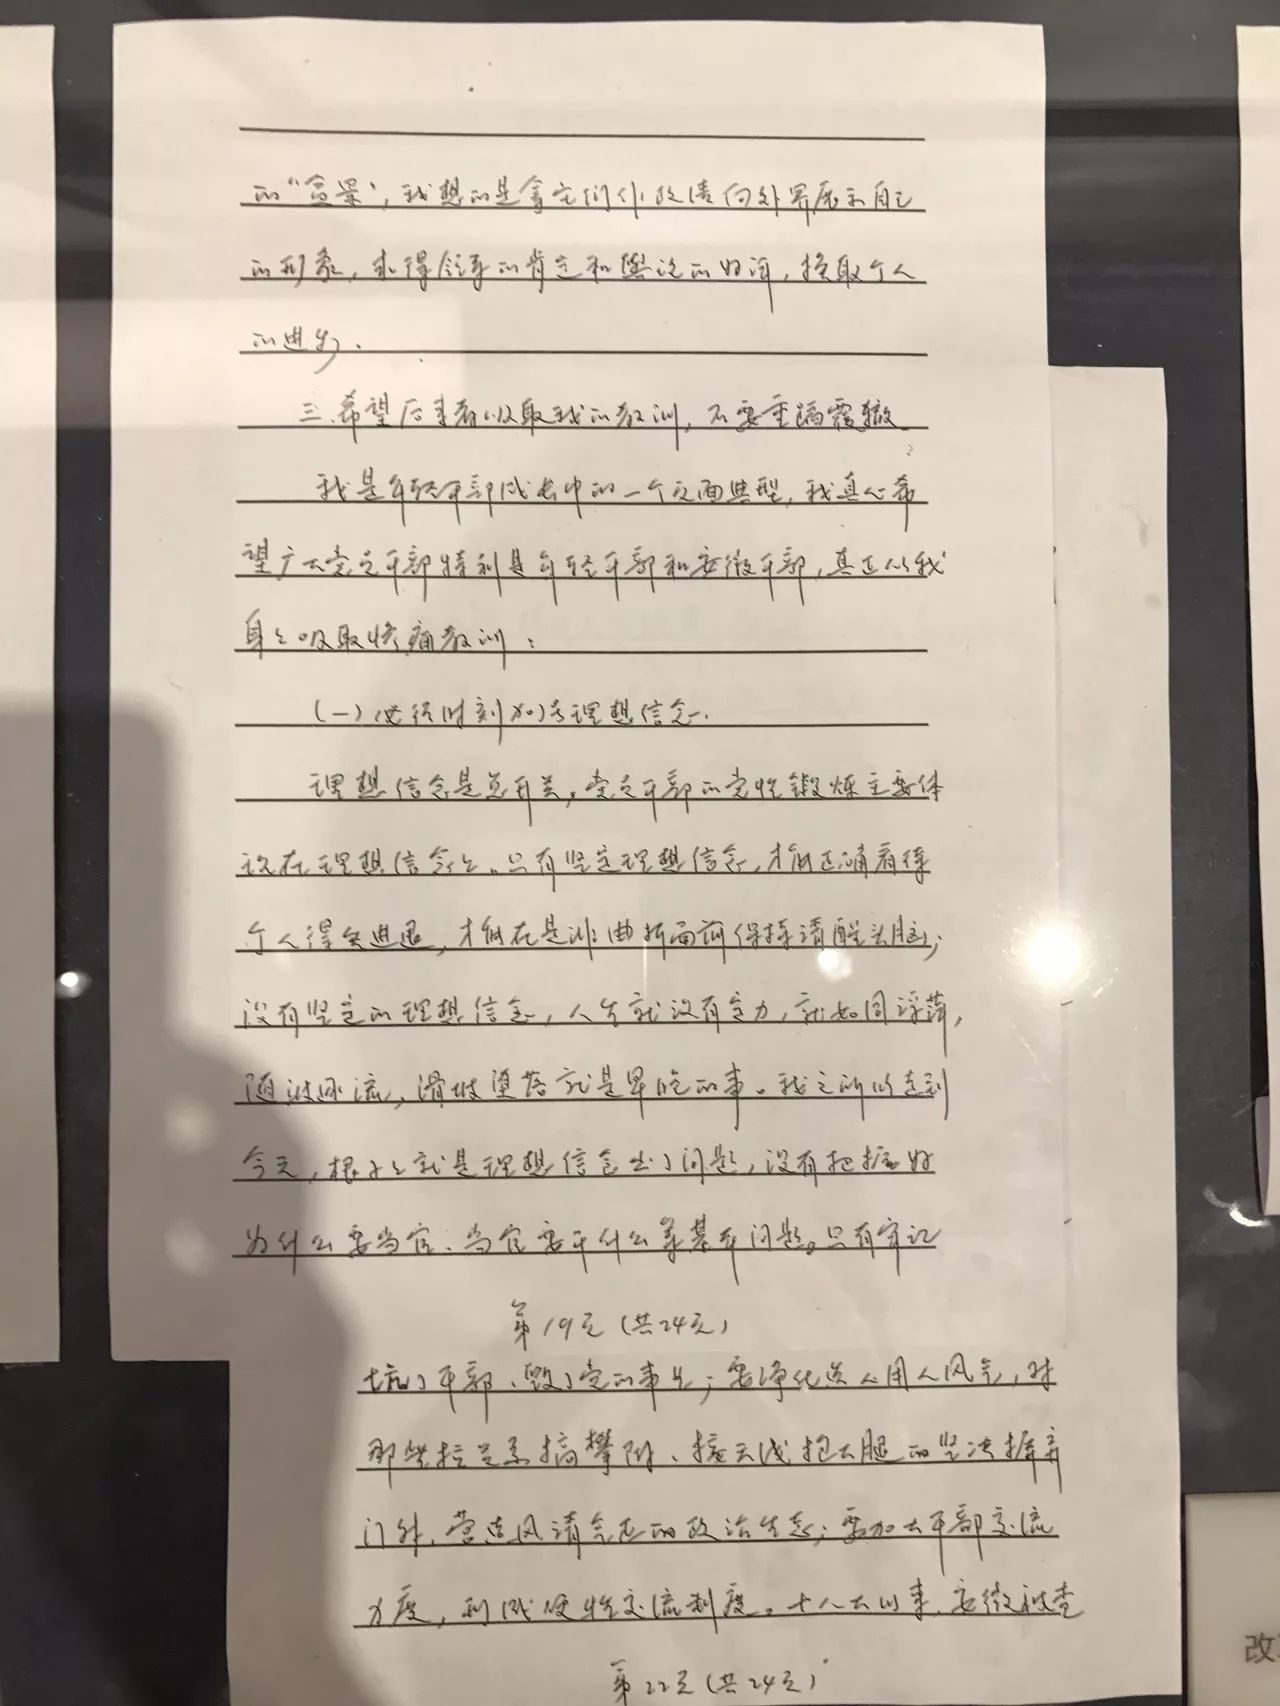 的“盆景”，我想的是拿它们作政绩向外界展示自己
的形象，求得领导的肯定和舆论的好评，换取个人
的进步。
三、希望后来者吸取我的教训，不要重蹈覆辙。
我是年轻干部成长中的一个反面典型，我真心希
望广大党员干部特别是年轻干部和安徽干部，真正从我
身上吸取惨痛教训：
（一）必须时刻加强理想信念。
理想信念是总开关，党员干部的党性锻炼主要体
现在理想信念上。只有坚定理想信念，才能正确看待
个人得失进退，才能在是非曲折面前保持清醒头脑；
没有坚定的理想信念，人生就没有定力，就如同浮萍，
随波逐流，滑坡堕落就是早晚的事。我之所以走到
今天，根子上就是理想信念出了问题，没有把握好
为什么要当官、当官要干什么等基本问题。只有牢记
第19页（共24页）
坑了干部、毁了党的事业；要净化选人用人风气，对
那些拉关系搞攀附、接天线抱大腿的坚决摒弃
门外，营造风清气正的政治生态；要加大干部交流
力度，形成硬性交流制度。十八大以来，安徽被查
第22页（共24页）
改